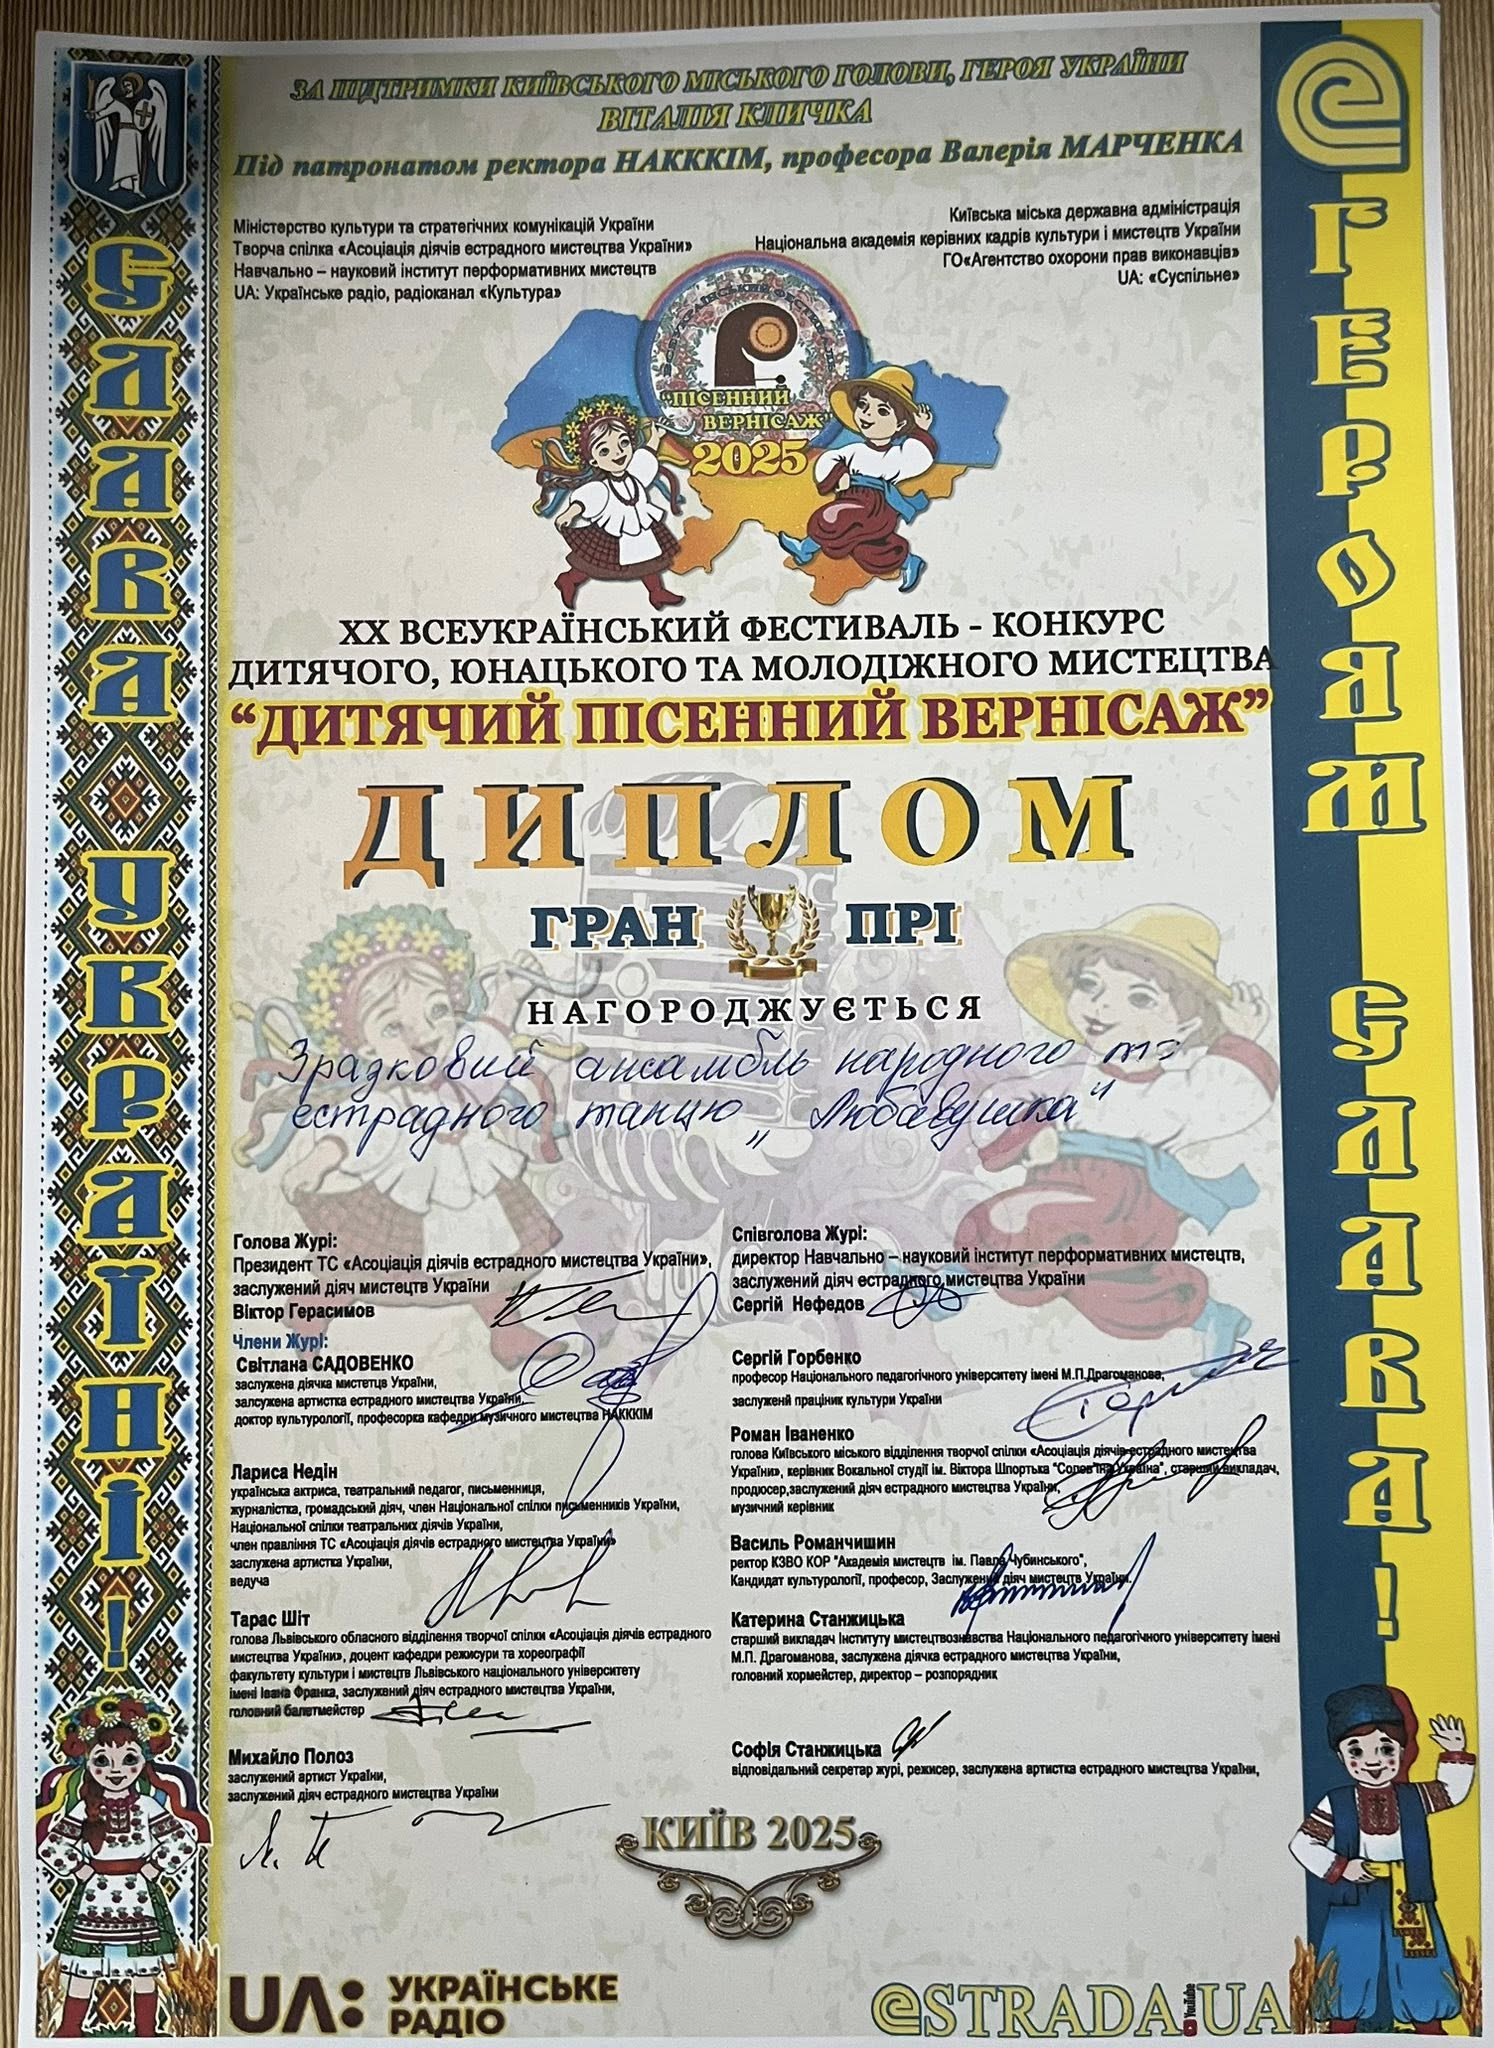 ЗА ПІДТРИМКИ КИЇВСЬКОГО МІСЬКОГО ГОЛОВИ, ГЕРОЯ УКРАЇНИ
ВІТАЛІЯ КЛИЧКА
Під патронатом ректора НАКККІМ, професора Валерія МАРЧЕНКА
Міністерство культури та стратегічних комунікацій України
Творча спілка «Асоціація діячів естрадного мистецтва України»
Навчально – науковий інститут перформативних мистецтв
UA: Українське радіо, радіоканал «Культура»
Київська міська державна адміністрація
Національна академія керівних кадрів культури і мистецтв України
ГО«Агентство охорони прав виконавців»
UA: «Суспільне»
ВСЕУКРАЇНСЬКИЙ ФЕСТИВАЛЬ
"ПІСЕННИЙ
ВЕРНІСАЖ"
2025
XX ВСЕУКРАЇНСЬКИЙ ФЕСТИВАЛЬ - КОНКУРС
ДИТЯЧОГО, ЮНАЦЬКОГО ТА МОЛОДІЖНОГО МИСТЕЦТВА
“ДИТЯЧИЙ ПІСЕННИЙ ВЕРНІСАЖ”
ДИПЛОМ
ГРАН ПРІ
НАГОРОДЖУЄТЬСЯ
Зразковий ансамбль народного та
естрадного танцю „Любавушка"
Голова Журі:
Президент ТС «Асоціація діячів естрадного мистецтва України»,
заслужений діяч мистецтв України
Віктор Герасимов
Співголова Журі:
директор Навчально – науковий інститут перформативних мистецтв,
заслужений діяч естрадного мистецтва України
Сергій Нефедов
Члени Журі:
Світлана САДОВЕНКО
заслужена діячка мистецтв України,
залсужена артистка естрадного мистецтва України,
доктор культурології, професорка кафедри музичного мистецтва НАКККІМ
Сергій Горбенко
професор Національного педагогічного університету імені М.П.Драгоманова,
заслужений праціник культури України
Роман Іваненко
голова Київського міського відділення творчої спілки «Асоціація діячів естрадного мистецтва
України», керівник Вокальної студії ім. Віктора Шпортька "Солов'їна Україна", старший викладач,
продюсер,заслужений діяч естрадного мистецтва України,
музичний керівник
Лариса Недін
українська актриса, театральний педагог, письменниця,
журналістка, громадський діяч, член Національної спілки письменників України,
Національної спілки театральних діячів України,
член правління ТС «Асоціація діячів естрадного мистецтва України»
заслужена артистка України,
ведуча
Василь Романчишин
ректор КЗВО КОР "Академія мистецтв ім. Павла Чубинського",
Кандидат культурології, професор, Заслужений діяч мистецтв України.
Тарас Шіт
голова Львівського обласного відділення творчої спілки «Асоціація діячів естрадного
мистецтва України», доцент кафедри режисури та хореографії
факультету культури і мистецтв Львівського національного університету
імені Івана Франка, заслужений діяч естрадного мистецтва України,
головний балетмейстер
Катерина Станжицька
старший викладач Інституту мистецтвознавства Національного педагогічного університету імені
М.П. Драгоманова, заслужена діячка естрадного мистецтва України,
головний хормейстер, директор – розпорядник
Михайло Полоз
заслужений артист України,
заслужений діяч естрадного мистецтва України
Софія Станжицька
відповідальний секретар журі, режисер, заслужена артистка естрадного мистецтва України,
КИЇВ 2025
UA: УКРАЇНСЬКЕ
РАДІО
eSTRADA.UA
YouTube
СЛАВА УКРАЇНІ!
ГЕРОЯМ СЛАВА!